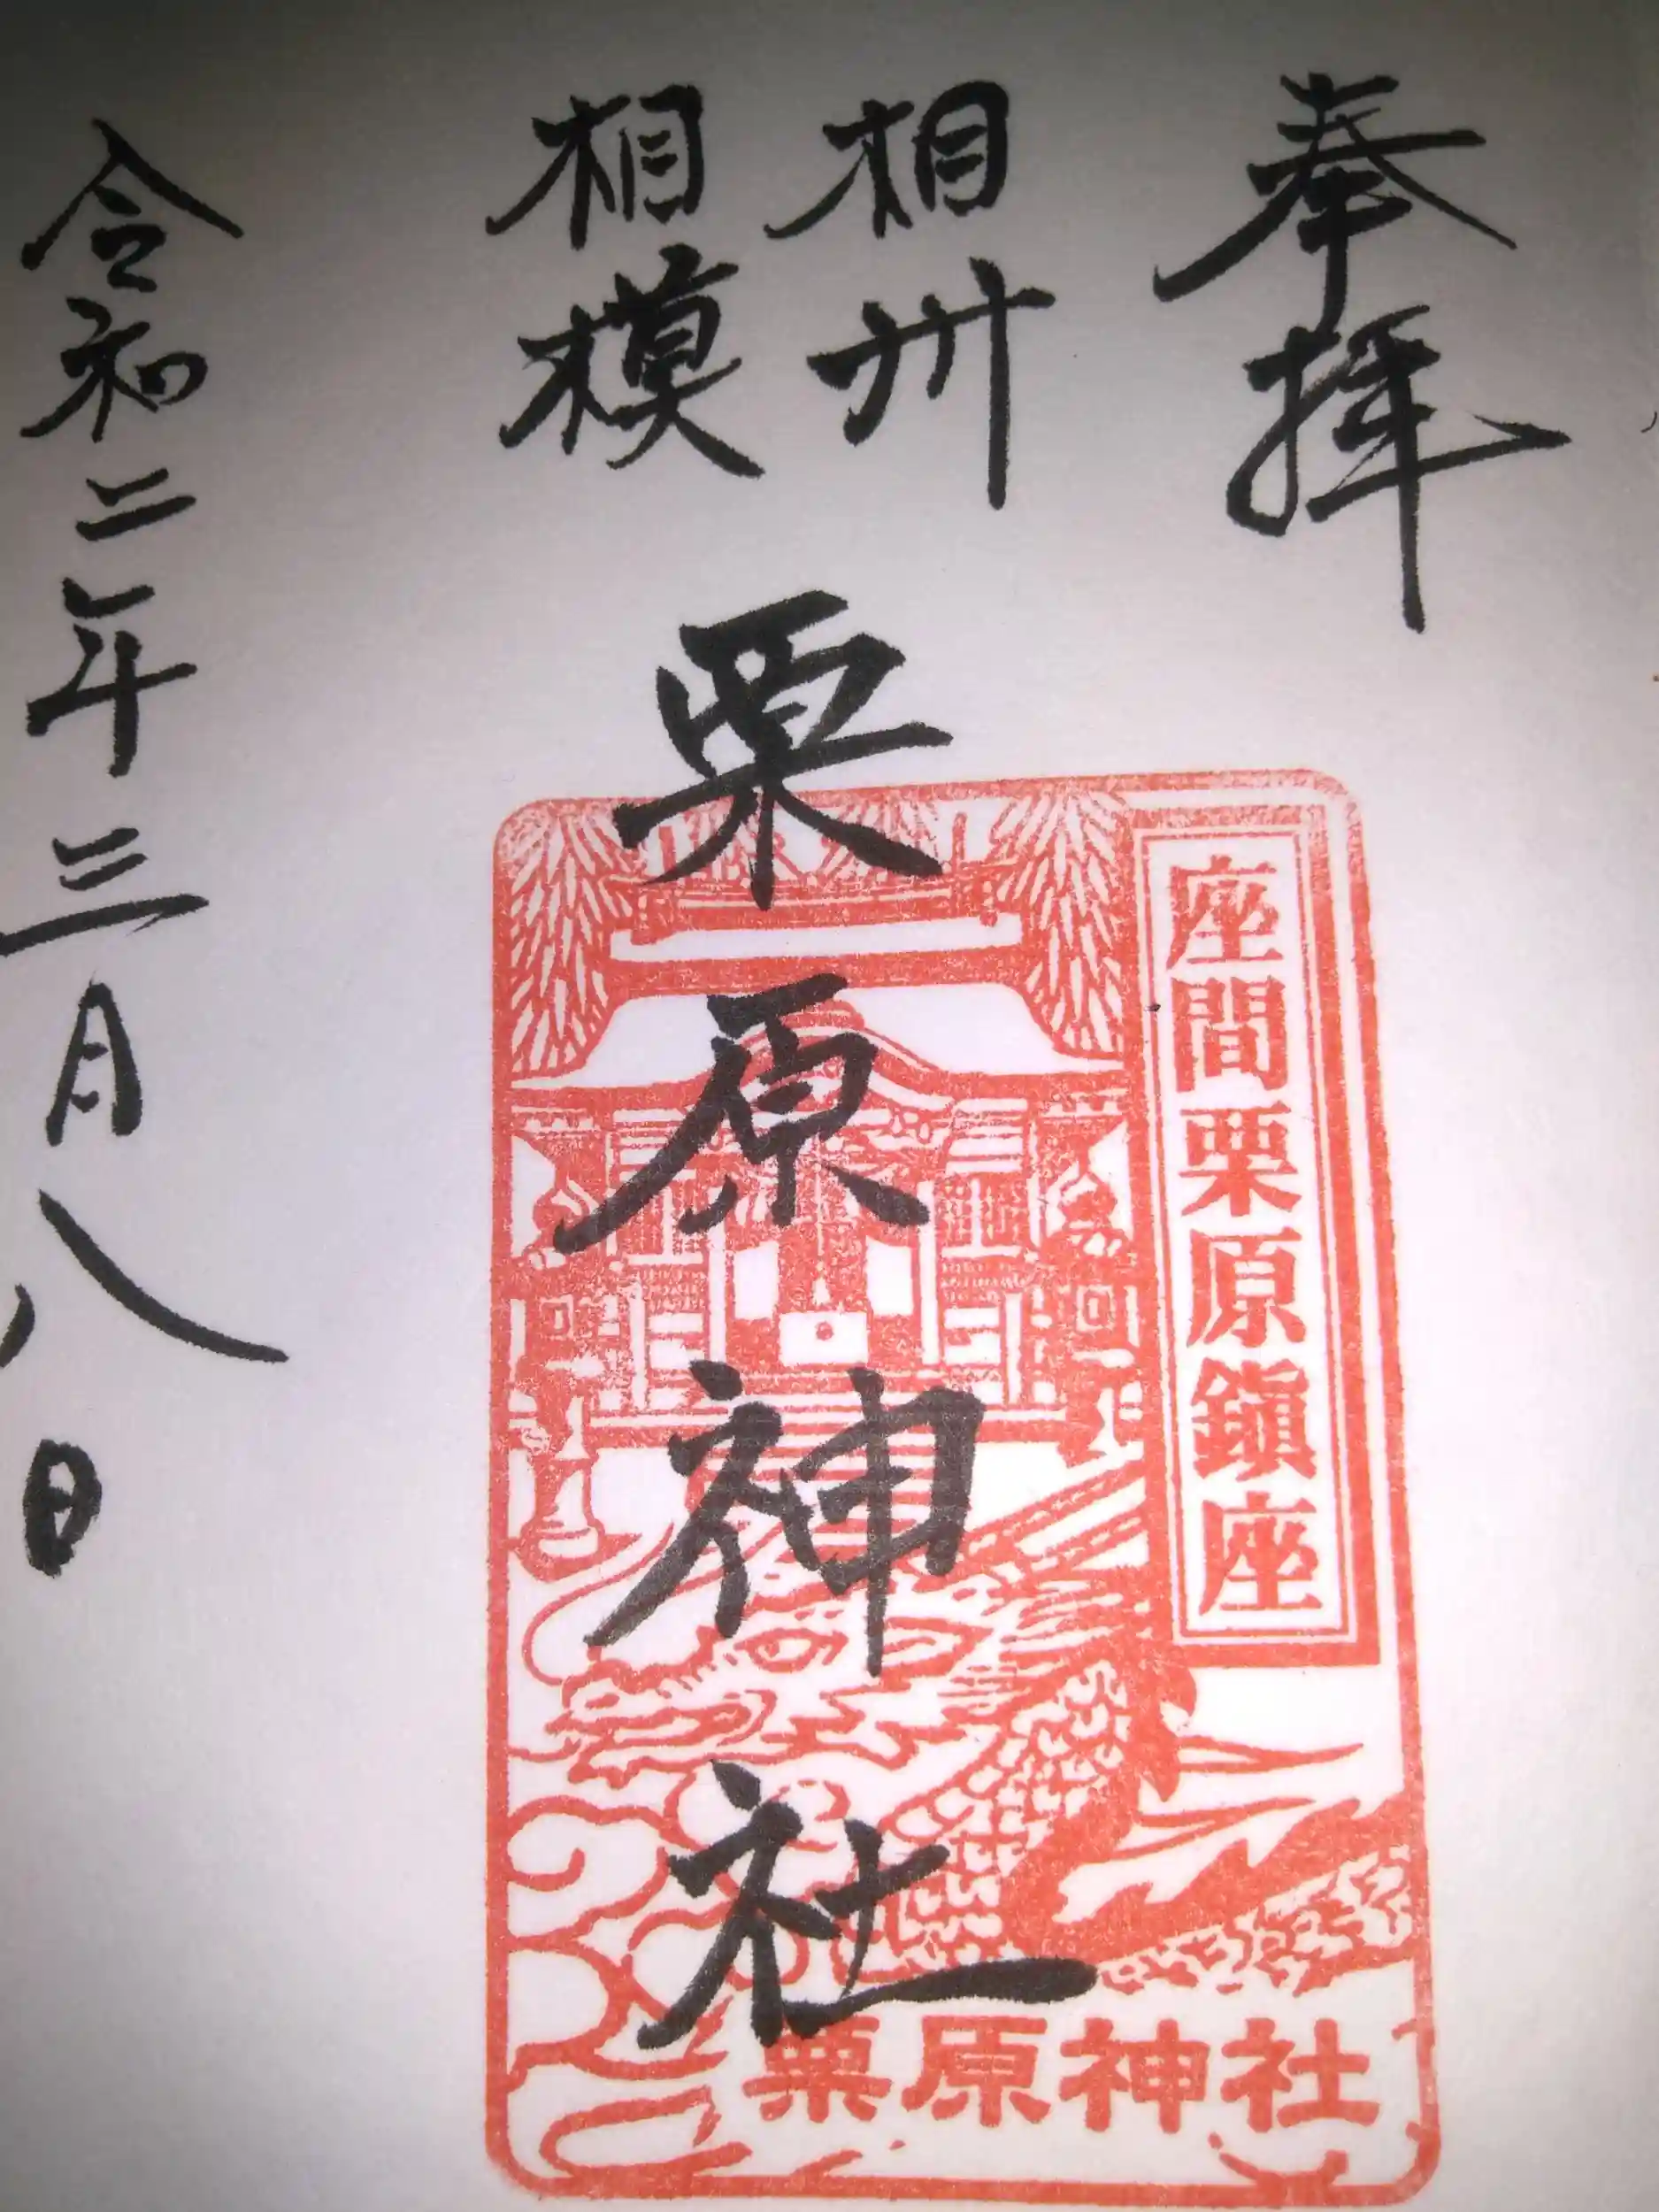 奉拝
相州
相模
栗原神社
座間栗原鎮座
栗原神社
令和二年三月八日